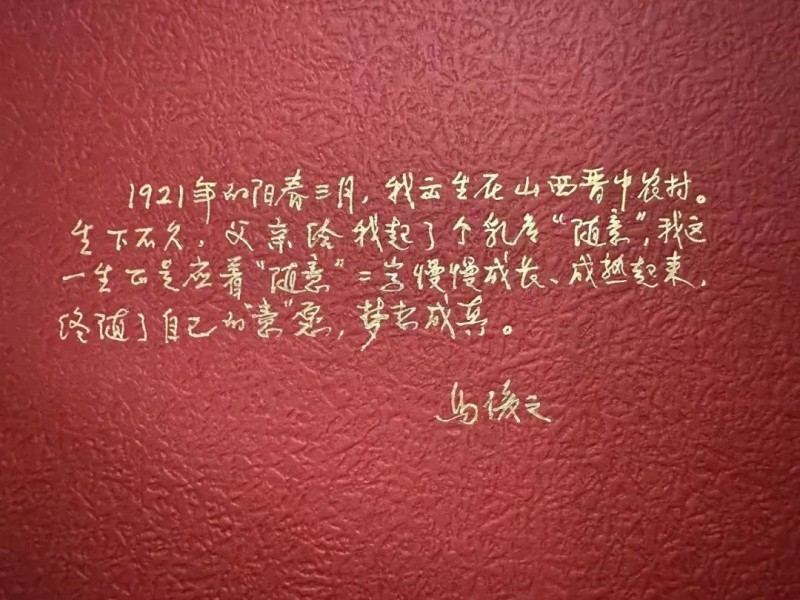 1921年的阳春三月，我出生在山西晋中农村。
生下不久，父亲给我起了个乳名“随意”，我这
一生正是应着“随意”二字慢慢成长、成熟起来，
终随了自己的“意”愿，梦想成真。
马俊之